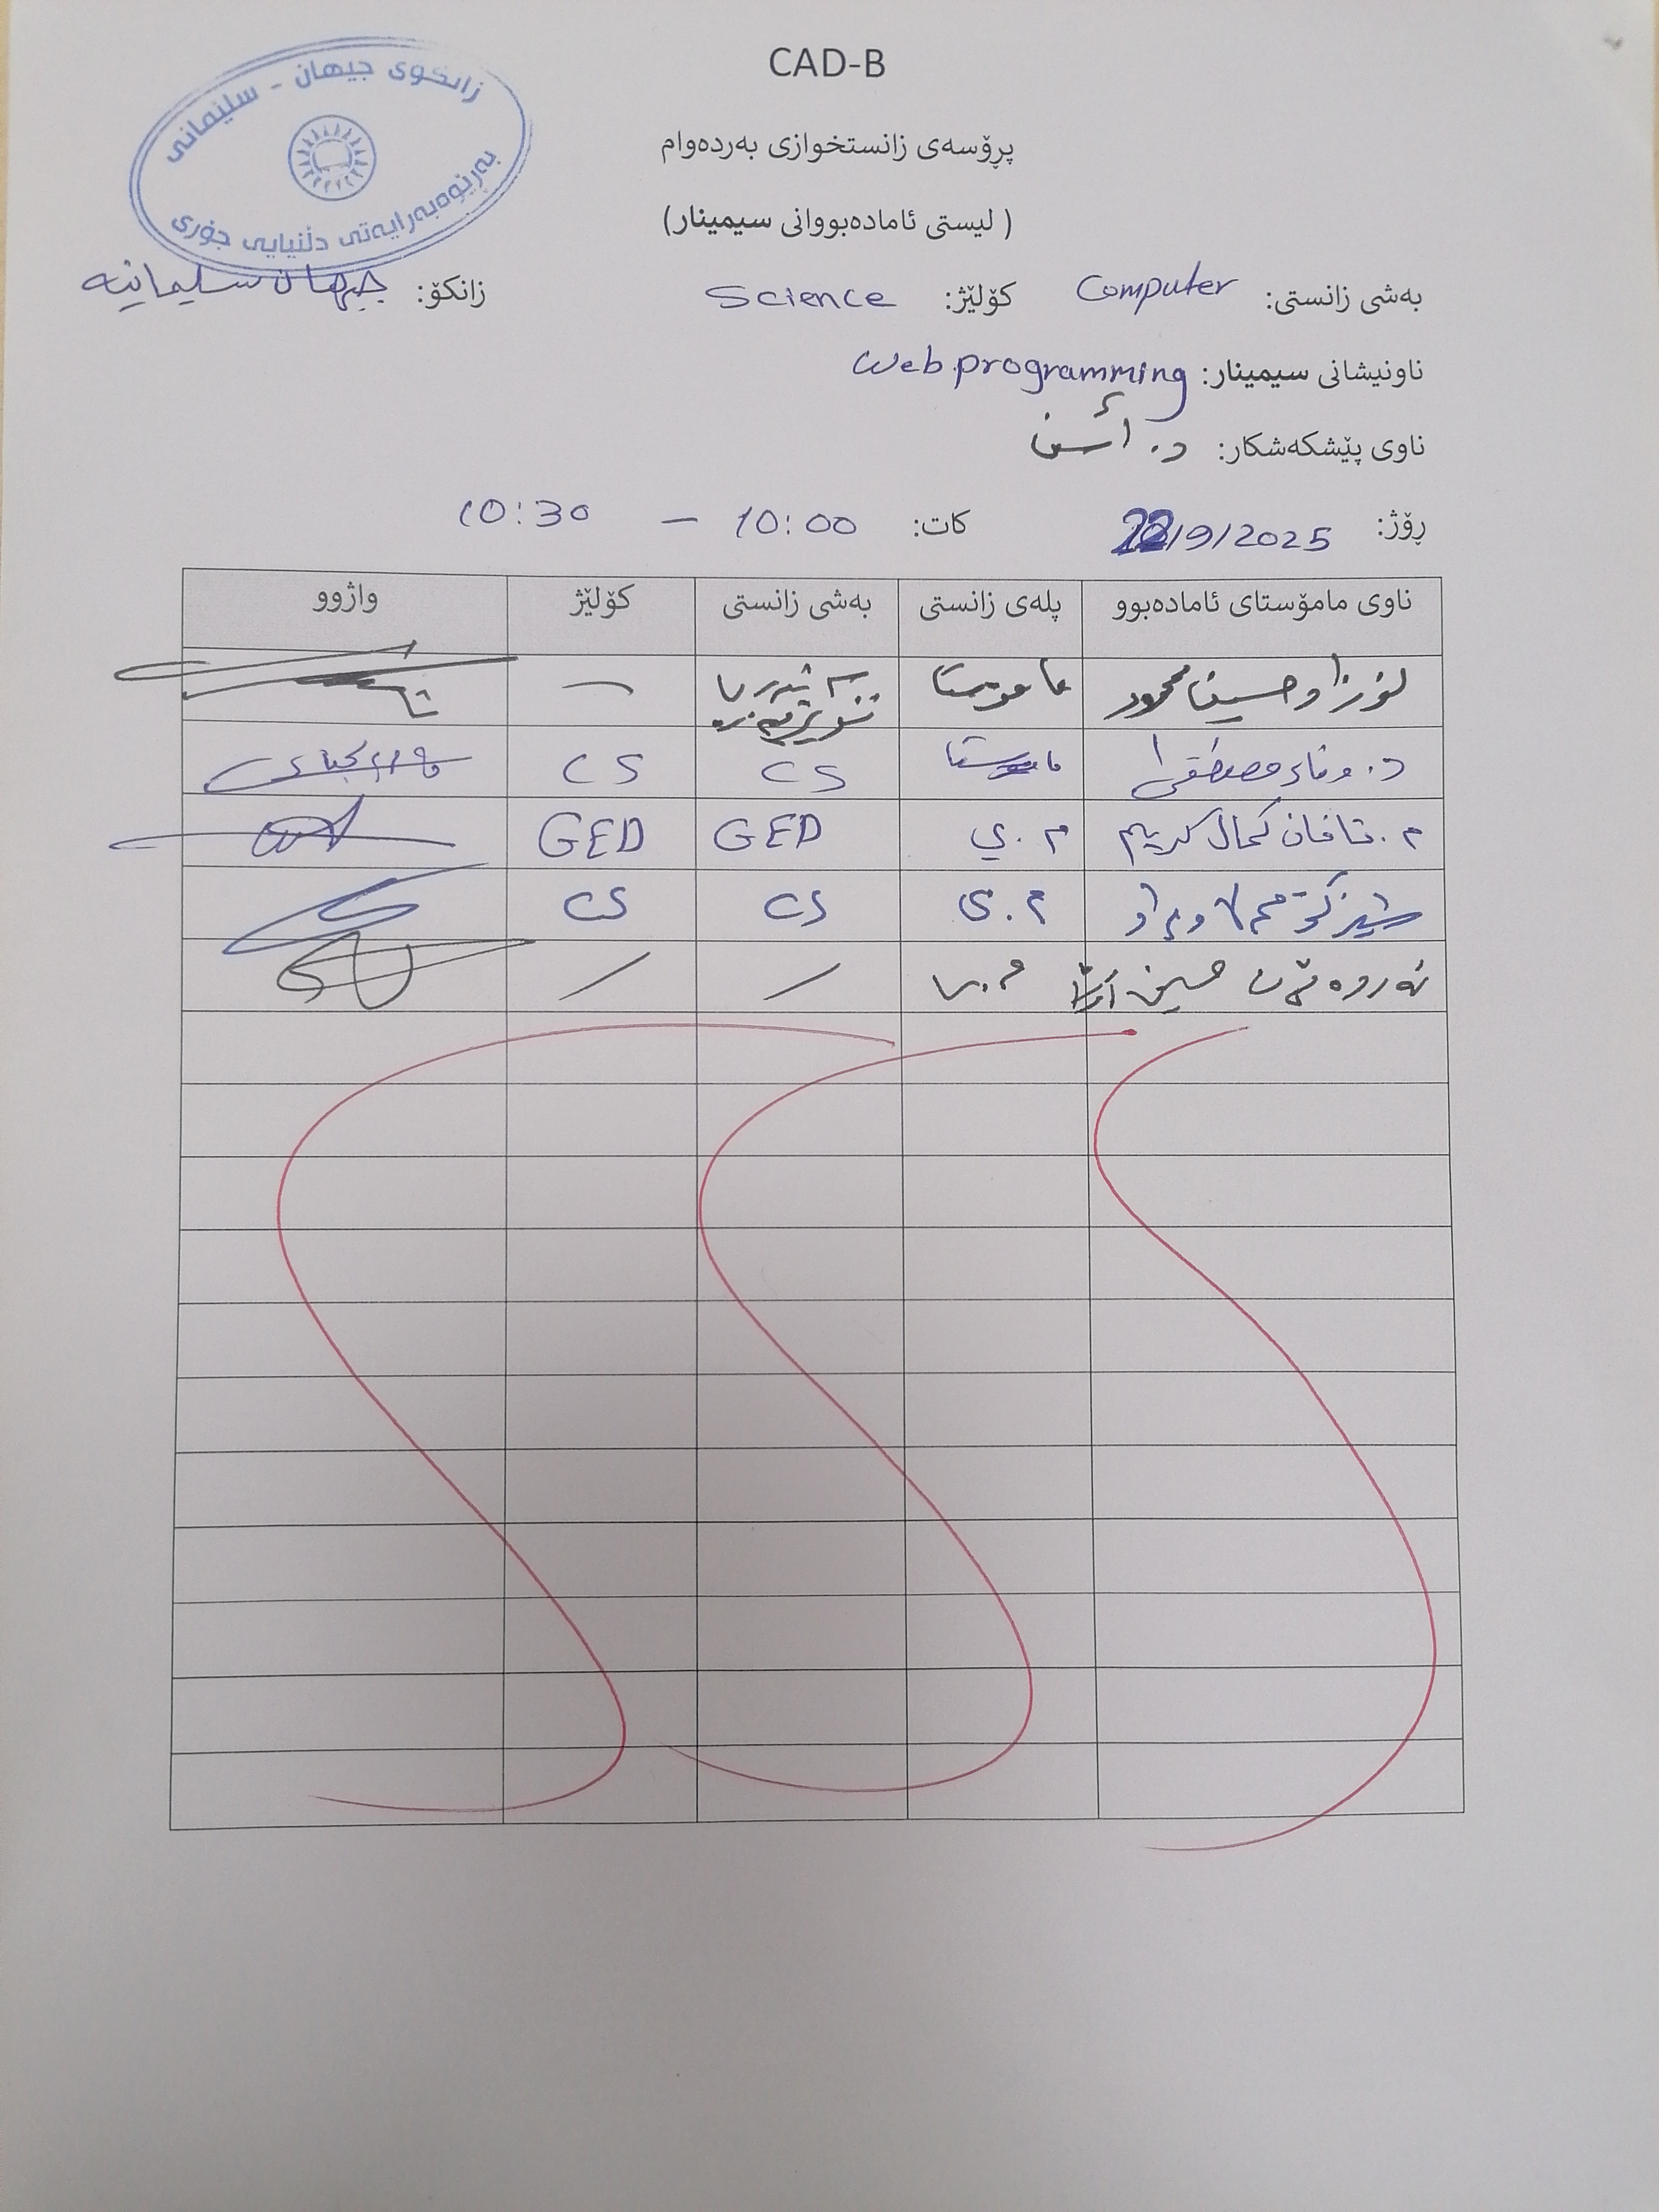 CAD-B
زانکۆی جیهان - سلێمانی
بەڕێوەبەرایەتی دڵنیایی جۆری
پڕۆسەی زانستخوازی بەردەوام
( لیستی ئامادەبووانی سیمینار)
بەشی زانستی: Computer کۆلێژ: Science زانکۆ: جیهان سلیمانیه
ناونیشانی سیمینار: Web programming
ناوی پێشکەشکار: د.
ڕۆژ: 22/9/2025 کات: 10:00 – 10:30
ناوی مامۆستای ئامادەبوو پلەی زانستی بەشی زانستی کۆلێژ واژوو
حسین محمود مامۆستا
د. وفاء مصطفی مامۆستا CS CS
م. کمال کریم م.ی GED GED
م.ی CS CS
حسین م.ی / /